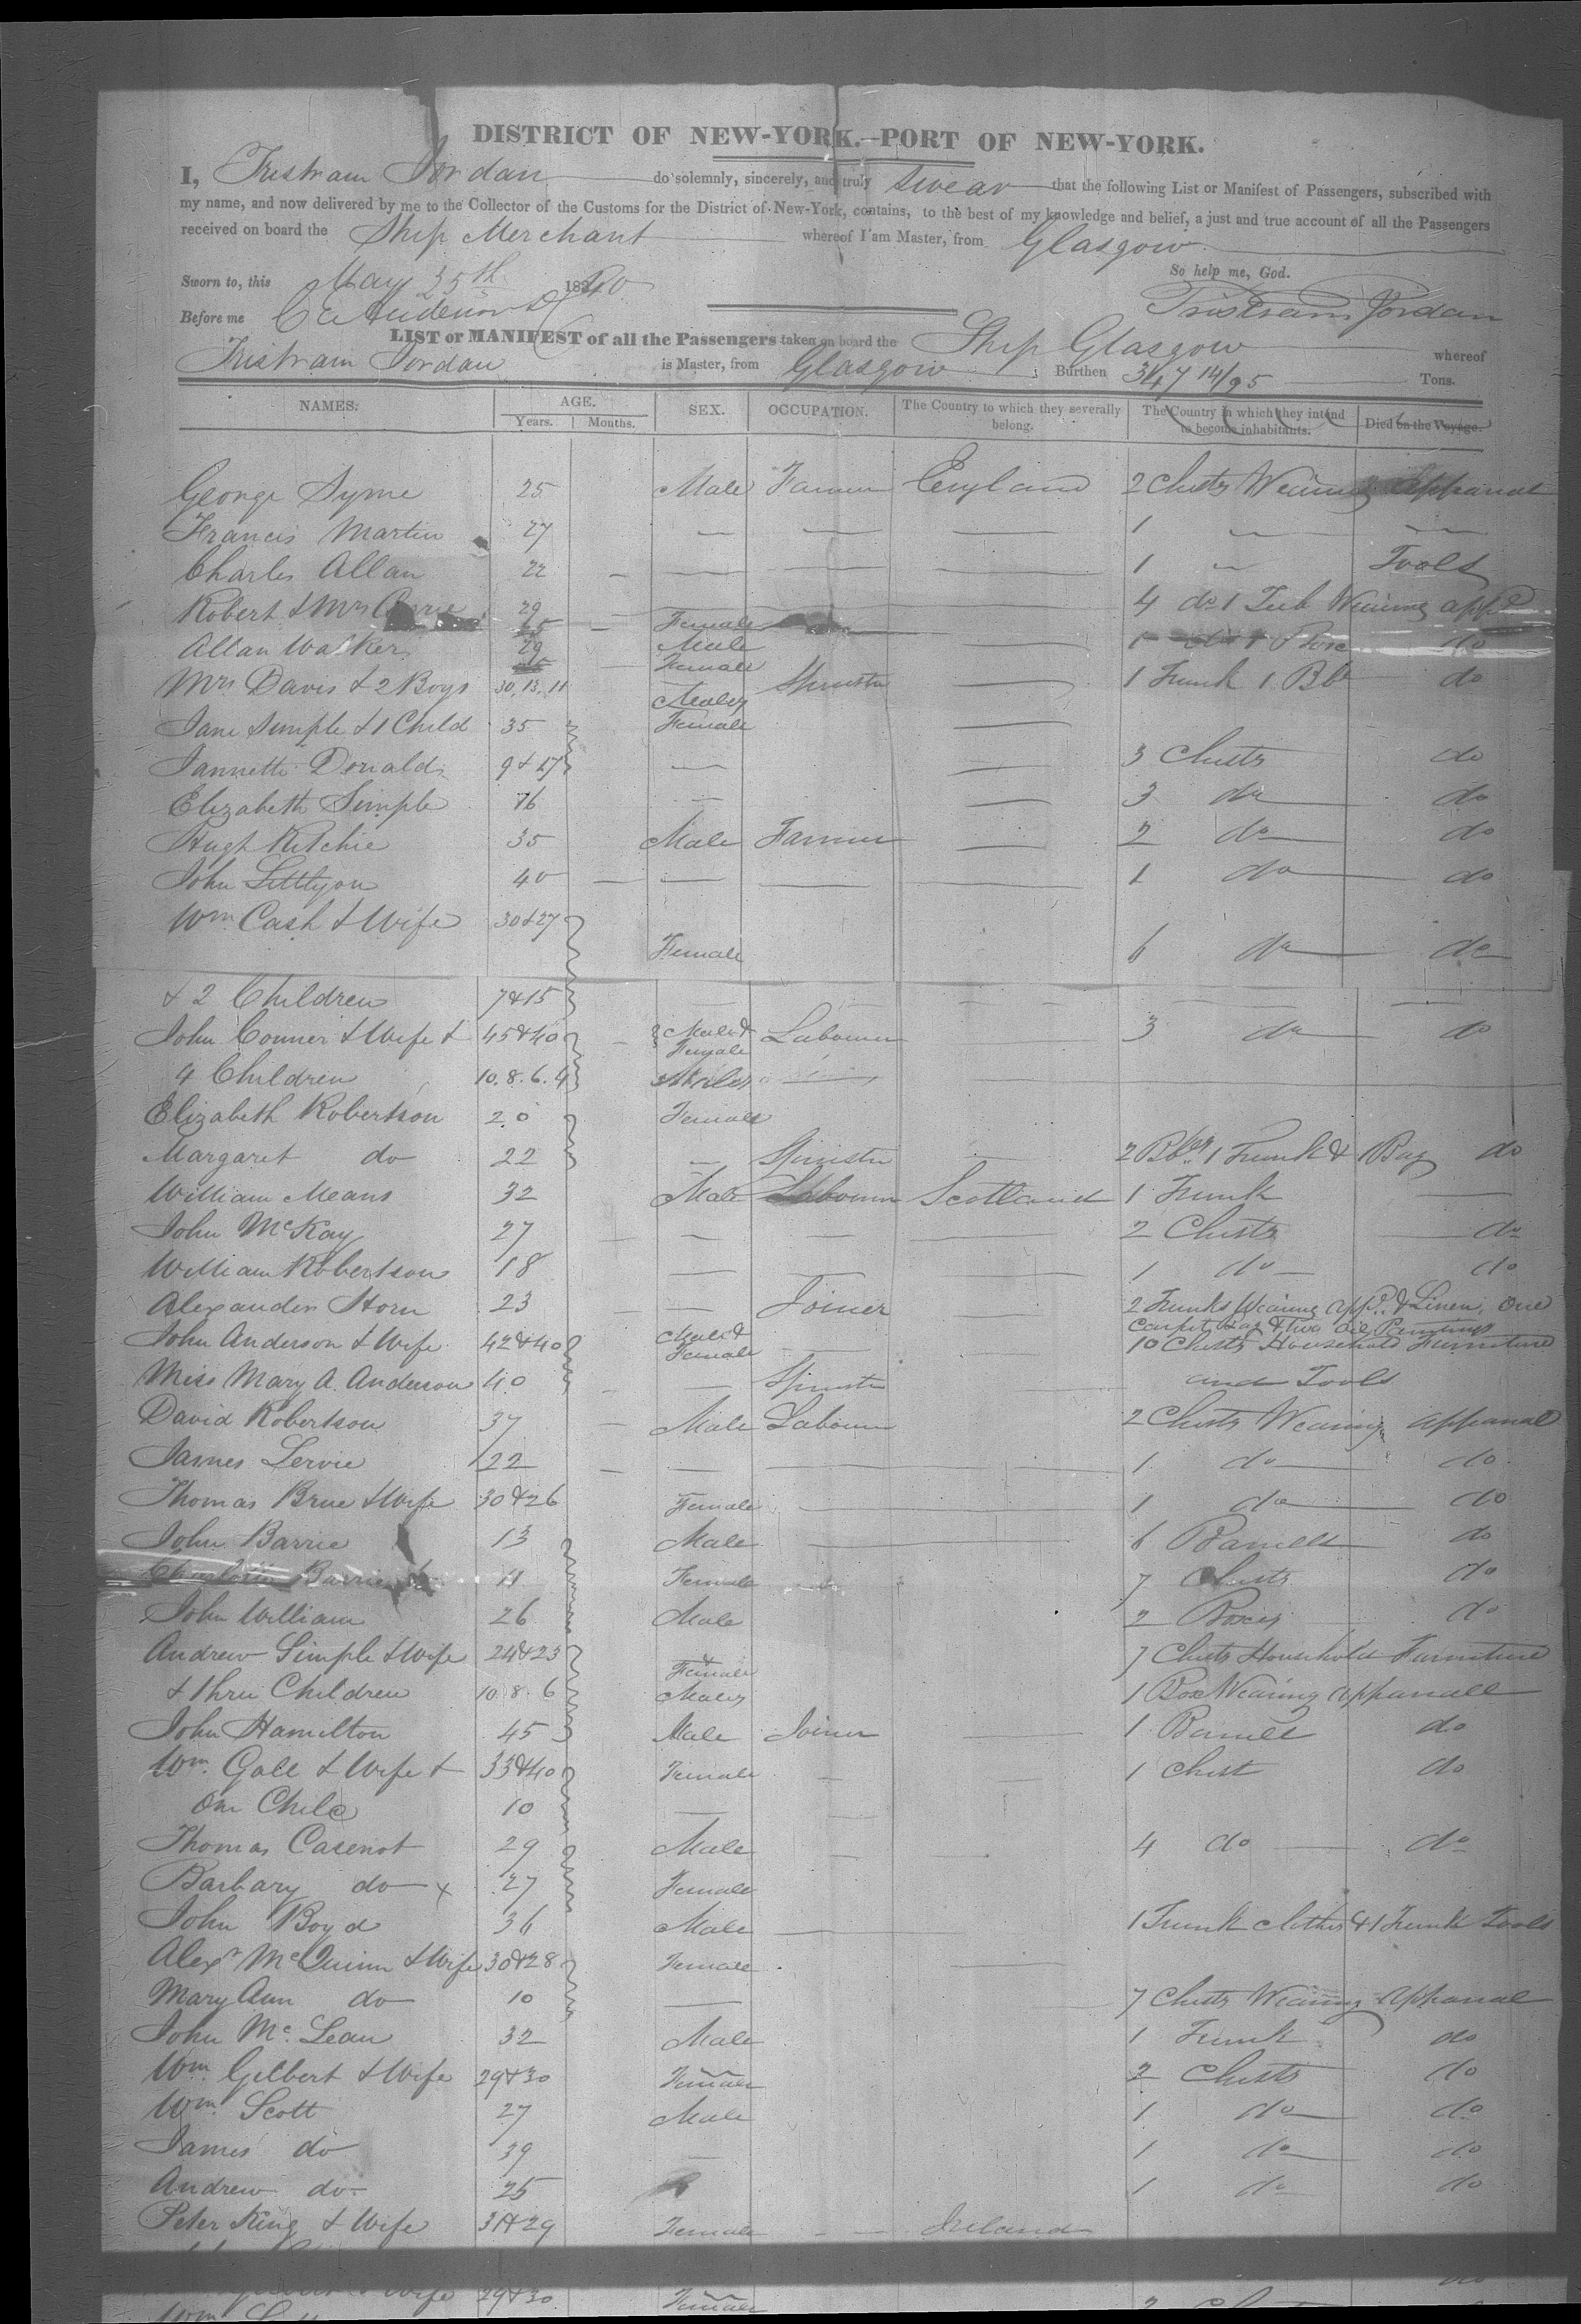 DISTRICT OF NEW-YORK.—PORT OF NEW-YORK.
I, Tristram Jordan do solemnly, sincerely, and truly swear that the following List or Manifest of Passengers, subscribed with
my name, and now delivered by me to the Collector of the Customs for the District of New-York, contains, to the best of my knowledge and belief, a just and true account of all the Passengers
received on board the Ship Merchant whereof I am Master, from Glasgow
So help me, God.
Sworn to, this May 18
Before me Tristram Jordan
LIST or MANIFEST of all the Passengers taken on board the Ship Glasgow whereof
Tristram Jordan is Master, from Glasgow Burthen 347 14/95 Tons.
NAMES. AGE. Years. Months. SEX. OCCUPATION. The Country to which they severally belong. The Country in which they intend to become inhabitants. Died on the Voyage.
George Syme 25 Male Farmer England 2 Chests Wearing Apparael
Francis Martin 27 — — — 1 — —
Charles Allan 22 — — — — 1 — Tools
Robert & Mrs 29 25 — Female — 4 do 1 Tub Wearing appl
Allan Walker 29 Male Female — 1 do 1 Box do
Mrs Davis & 2 Boys 30, 13, 11 Males Spinster — 1 Trunk 1 Bbl do
Jane Simple & 1 Child 35 Female —
Jannette Donald 9 & 17 — — 3 Chests do
Elizabeth Simple 76 — — 3 do do
Hugh Ritchie 35 Male Farmer — 2 do do
John Littlyon 40 — — — — 1 do do
Wm Cash & Wife 30 & 27 Female 6 do do
& 2 Children 7 & 15 — — — — —
John Conner & Wife & 45 & 40 — Male & Female Labourer — 3 do do
4 Children 10. 8. 6. 4 Males —
Elizabeth Robertson 20 Female
Margaret do 22 — Spinster — 2 Bbls 1 Trunk & 1 Bag do
William Means 32 Male Labourer Scotland 1 Trunk —
John McKay 27 — — — — 2 Chests do
William Robertson 18 — — — 1 do do
Alexander Horn 23 — — Joiner — 2 Trunks Wearing appl. & Linen, One
Carpet Bag & two Oil Paintings
John Anderson & Wife 42 & 40 Male & Female — — 10 Chests Household Furniture
Miss Mary A. Anderson 40 — — Spinster — and Tools
David Robertson 37 — Male Labourer 2 Chests Wearing apparael
James Lervie 22 — — — — 1 do do
Thomas Brue & Wife 30 & 26 Female — 1 do do
John Barrie 13 Male — 6 Barrells do
Barrie 11 Female 7 Chests do
John William 26 Male 2 Boxes do
Andrew Simple & Wife 24 & 23 & Female 7 Chests Household Furniture
& Three Children 10. 8. 6 Males 1 Box Wearing apparaell
John Hamilton 45 Male Joiner — 1 Barrell do
Wm. Gall & Wife & 33 & 40 Female — — 1 Chest do
One Child 10 — —
Thomas Casenot 29 Male — — 4 do do
Barbary do x 27 Female
John Boyd 36 Male — — 1 Trunk clothes & 1 Trunk Tools
Alexr McQuinn & Wife 30 & 28 Female —
Mary Ann do 10 — 7 Chests Wearing Apparael
John Mc. Lean 32 Male 1 Trunk do
Wm. Gilbert & Wife 29 & 30 Female 2 Chests do
Wm. Scott 27 Male 1 do do
James do 39 — 1 do do
Andrew do 25 1 do do
Peter King & Wife 31 & 29 Female — — Ireland
& Wife 29 & 30 Female
Wm